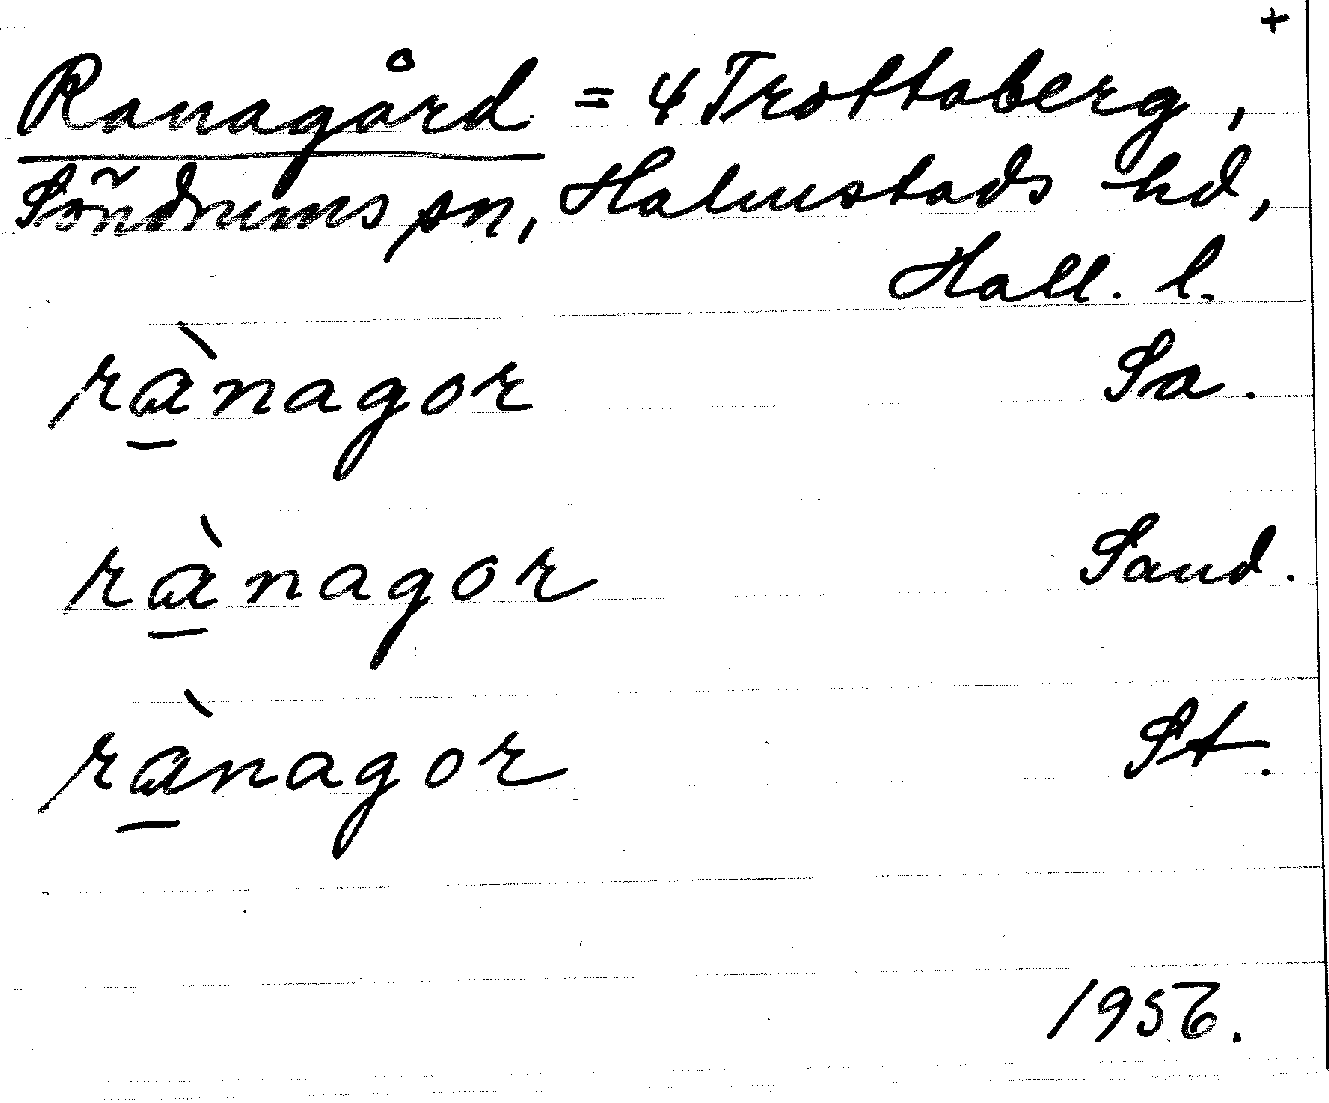 +
Ranagård = 4 Trottaberg,
Söndrums sn, Halmstads hd,
Hall. l.
rànagor Sa.
rànagor Sand.
rànagor St.
1956.